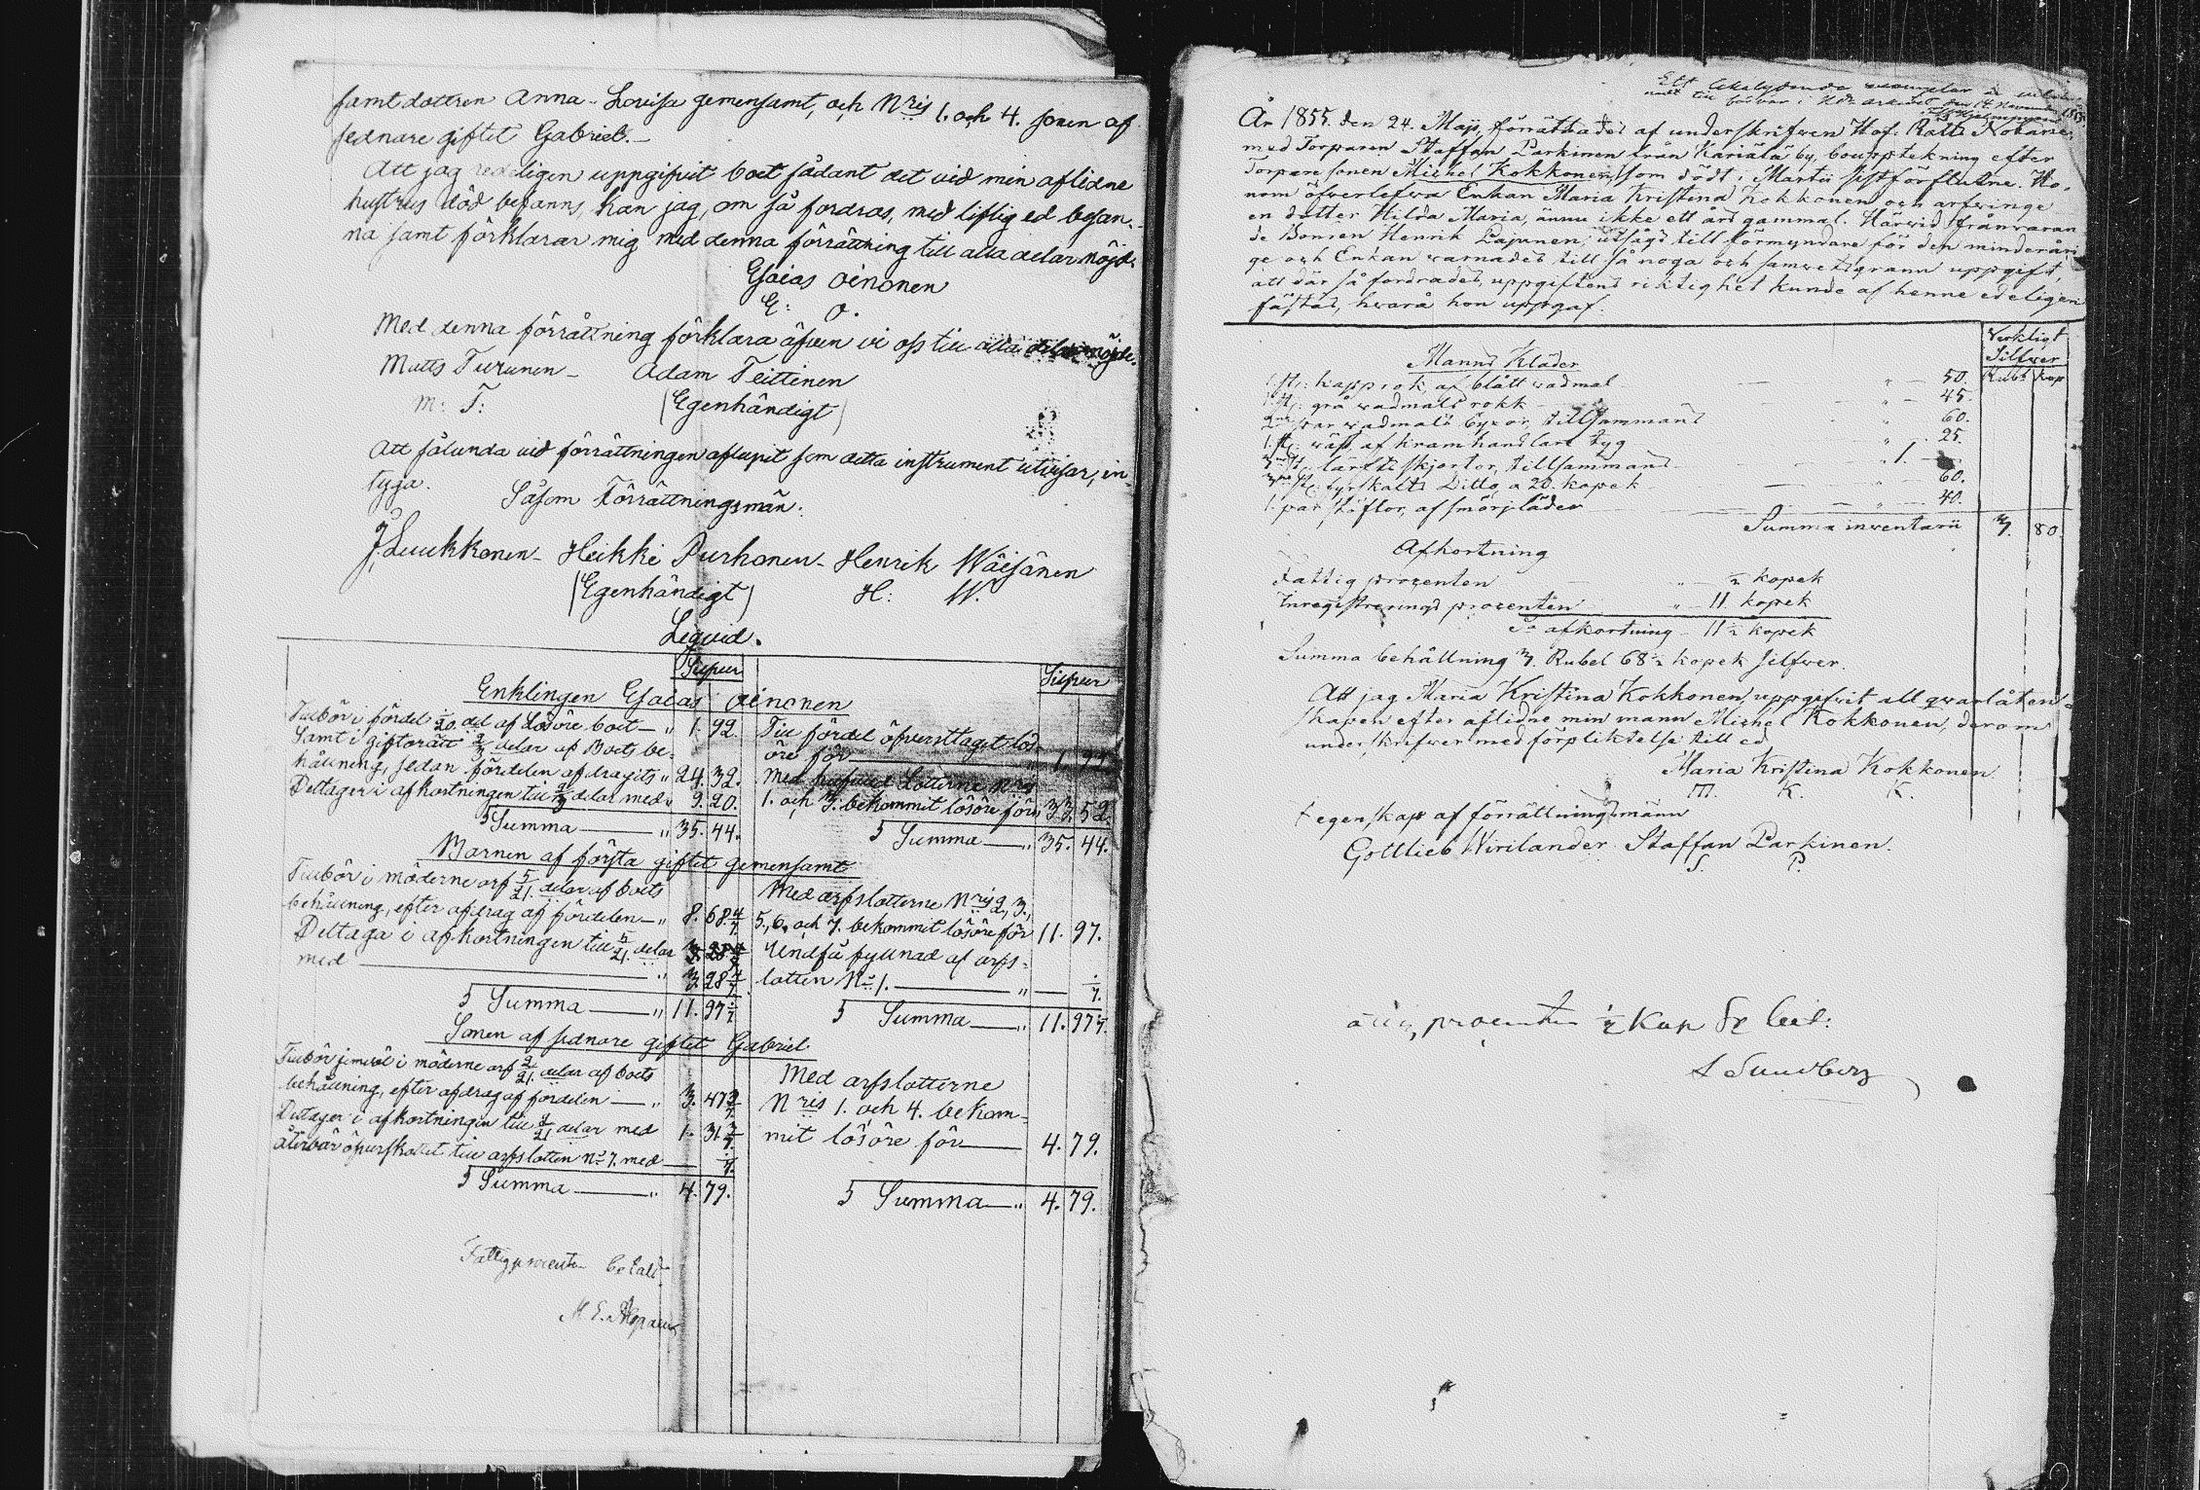 samt dottren Anna-Lovisa gemensamt, och Nris 1. och 4. sonen af
sednare giftet Gabriel.-
Att jag redeligen uppgifvit boet sådant det vid min aflidne
hustrus död befanns, kan jag, om så fordras, med liflig ed besan-
na samt förklarar mig med denna förrättning till alla delar nöjd.
Esaias Oinonen
E: O.
Med denna förrättning förklara äfven vi oss till alla delar nöjde.
Matts Turunen- Adam Teittinen
M: T: (Egenhändigt)
Att sålunda vid förrättningen aflupit som detta instrument utvisar, in-
tyga.
Såsom Förrättningsmän:
J. Luukkonen- Heikki Purhonen- Henrik Wäisänen
(Egenhändigt) H: W.
Liqvid.
Silfver
Silfver
Enklingen Esaias Oinonen
Tillbör i fördel 1/20 del af Lösöre boet-" 1. 92.
Samt i giftorätt 2/3 delar af Boets be-
hållning, sedan fördelen afdragits " 24. 32.
Deltager i afkortningen till 2/3 delar med " 9. 20.
S Summa " 35. 44.
Till fördel öfversttaget lös-
öre för " 1. 92.
Med hufvud Lotterne Nris
1. och 3. bekommit lösöre för " 33. 52.
S Summa " 35. 44.
Barnen af första giftet gemensamt
Tillbör i möderne arf 5/21. delar af boets
behållning, efter afdrag af fördelen-" 8. 68 4/7
Deltaga i afkortningen till 5/21. delar
med " 3. 28 4/7
S Summa " 11. 97 1/7
Med arfslotterne Nris 2, 3,
5., 6. och 7. bekommit lösöre för 11. 97.
Undfå fyllnad af arfs-
lotten No 1. " 1/7.
S Summa " 11. 97 1/7.
Sonen af sednare giftet Gabriel
Tillbör jemväl i möderne arf 2/21. delar af boets
behållning, efter afdrag af fördelen " 3. 47 3/7
Deltager i afkortningen till 2/21 delar med 1. 31 3/7.
Återbär öfverskottet till arfslotten No 7. med 1/7.
S Summa " 4. 79.
Med arfslotterne
Nris 1. och 4. bekom-
mit lösöre för 4. 79.
S Summa " 4. 79.
Fattigprocenten betald
Ett likalydande exemplar är
till förvar i
År 1855. den 24. Maji, förrättades af underskrifwen Hof. Rätts Notarie,
med Torparen Staffan Parkinen från Kariala by, bouppteckning efter
Torpare sonen Michel Kokkonen, som dödt i Martii sistförflutne. Ho-
nom öfwerlefwa Enkan Maria Kristina Kokkonen och arfwinge
en dotter Hilda Maria, ännu ikke ett års gammal. Härwid frånwaran
de Bonden Henrik Pajunen, utsågs till förmyndare för den minderåri
ge och Enkan warnades till så noga och samwetsgrann uppgift,
att där så fordrades, uppgiftens riktighet kunde af henne edeligen
fästas, hwarå hon uppgaf.
Werkligt
Silfwer
Rubl kop
Manns Kläder
1. st. kapprok, af blått wadmal " 50.
1. st. grå wadmals rokk " 45.
2ne par wadmals byxor, tillsammans " 60.
1. st. wäst af kramhandlare tyg " 25.
lärfts skjortor, tillsammans " 1. —
fyrskafts Ditto a 20. kopek " 60.
1. par stöflor, af smörjläder " 40.
Summa inwentarii 3. 80.
Afkortning
Fattig prosenten " 1/2 kopek
Inregistrerings prosenten " 11 kopek
Sa afkortning 11 1/2 kopek
Summa behållning 3. Rubel 68 1/2 kopek silfwer.
Att jag Maria Kristina Kokkonen, uppgifwit all qwarlåten-
skapen efter aflidne min mann Michel Kokkonen, derom
underskrifwer med förpliktelse till ed
Maria Kristina Kokkonen
M. K. K.
I egenskap af förrättningsmänn
Gottlieb Wirilander. Staffan Parkinen.
S. P.
procenten 1/2 Kop Sr